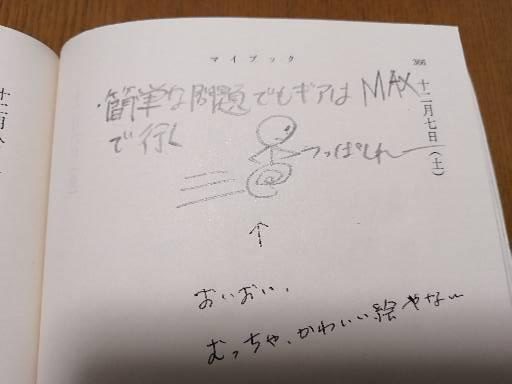 マイブック
366
十二月七日（土）
・簡単な問題でもギアはMAX
で行く
つっぱしれー
↑
おいおい、
むっちゃ、かわいい絵やないー